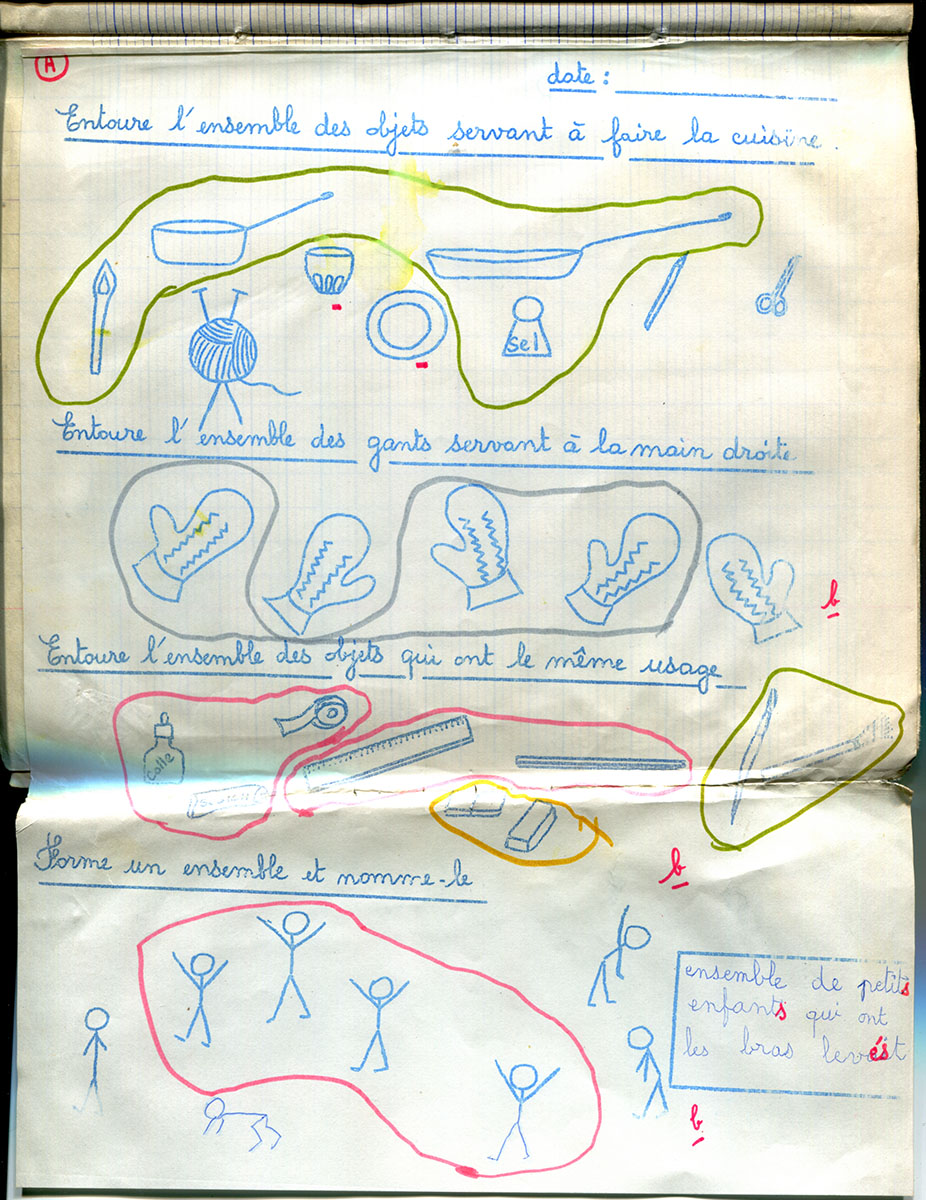 A
date :
Entoure l'ensemble des objets servant à faire la cuisine.
sel
Entoure l'ensemble des gants servant à la main droite
b
Entoure l'ensemble des objets qui ont le même usage
Colle
b
Forme un ensemble et nomme-le
ensemble de petits
enfants qui ont
les bras levés
b